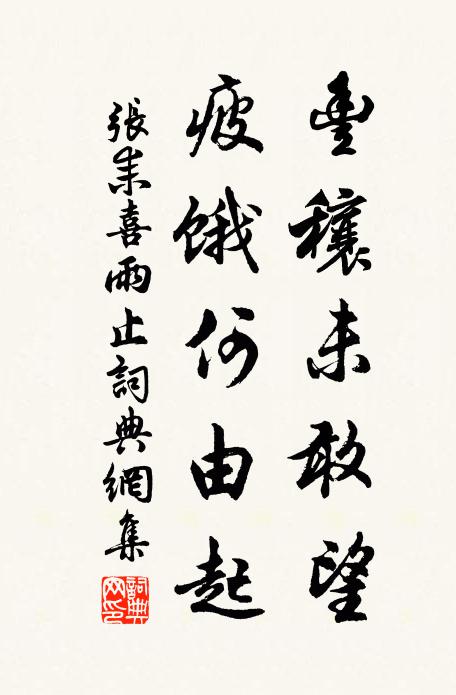 豐穰未敢望
疲餓何由起
張耒喜雨止詞典網集
詞典網印